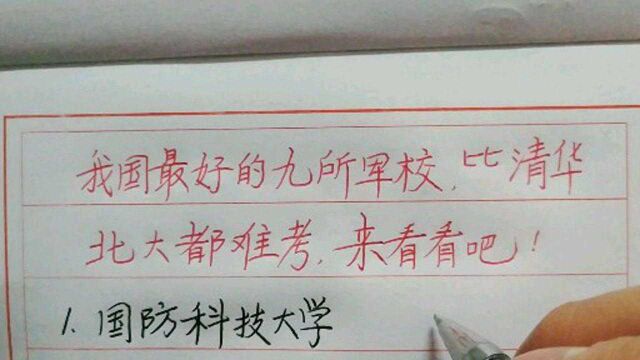 我国最好的九所军校，比清华
北大都难考，来看看吧！
1.国防科技大学